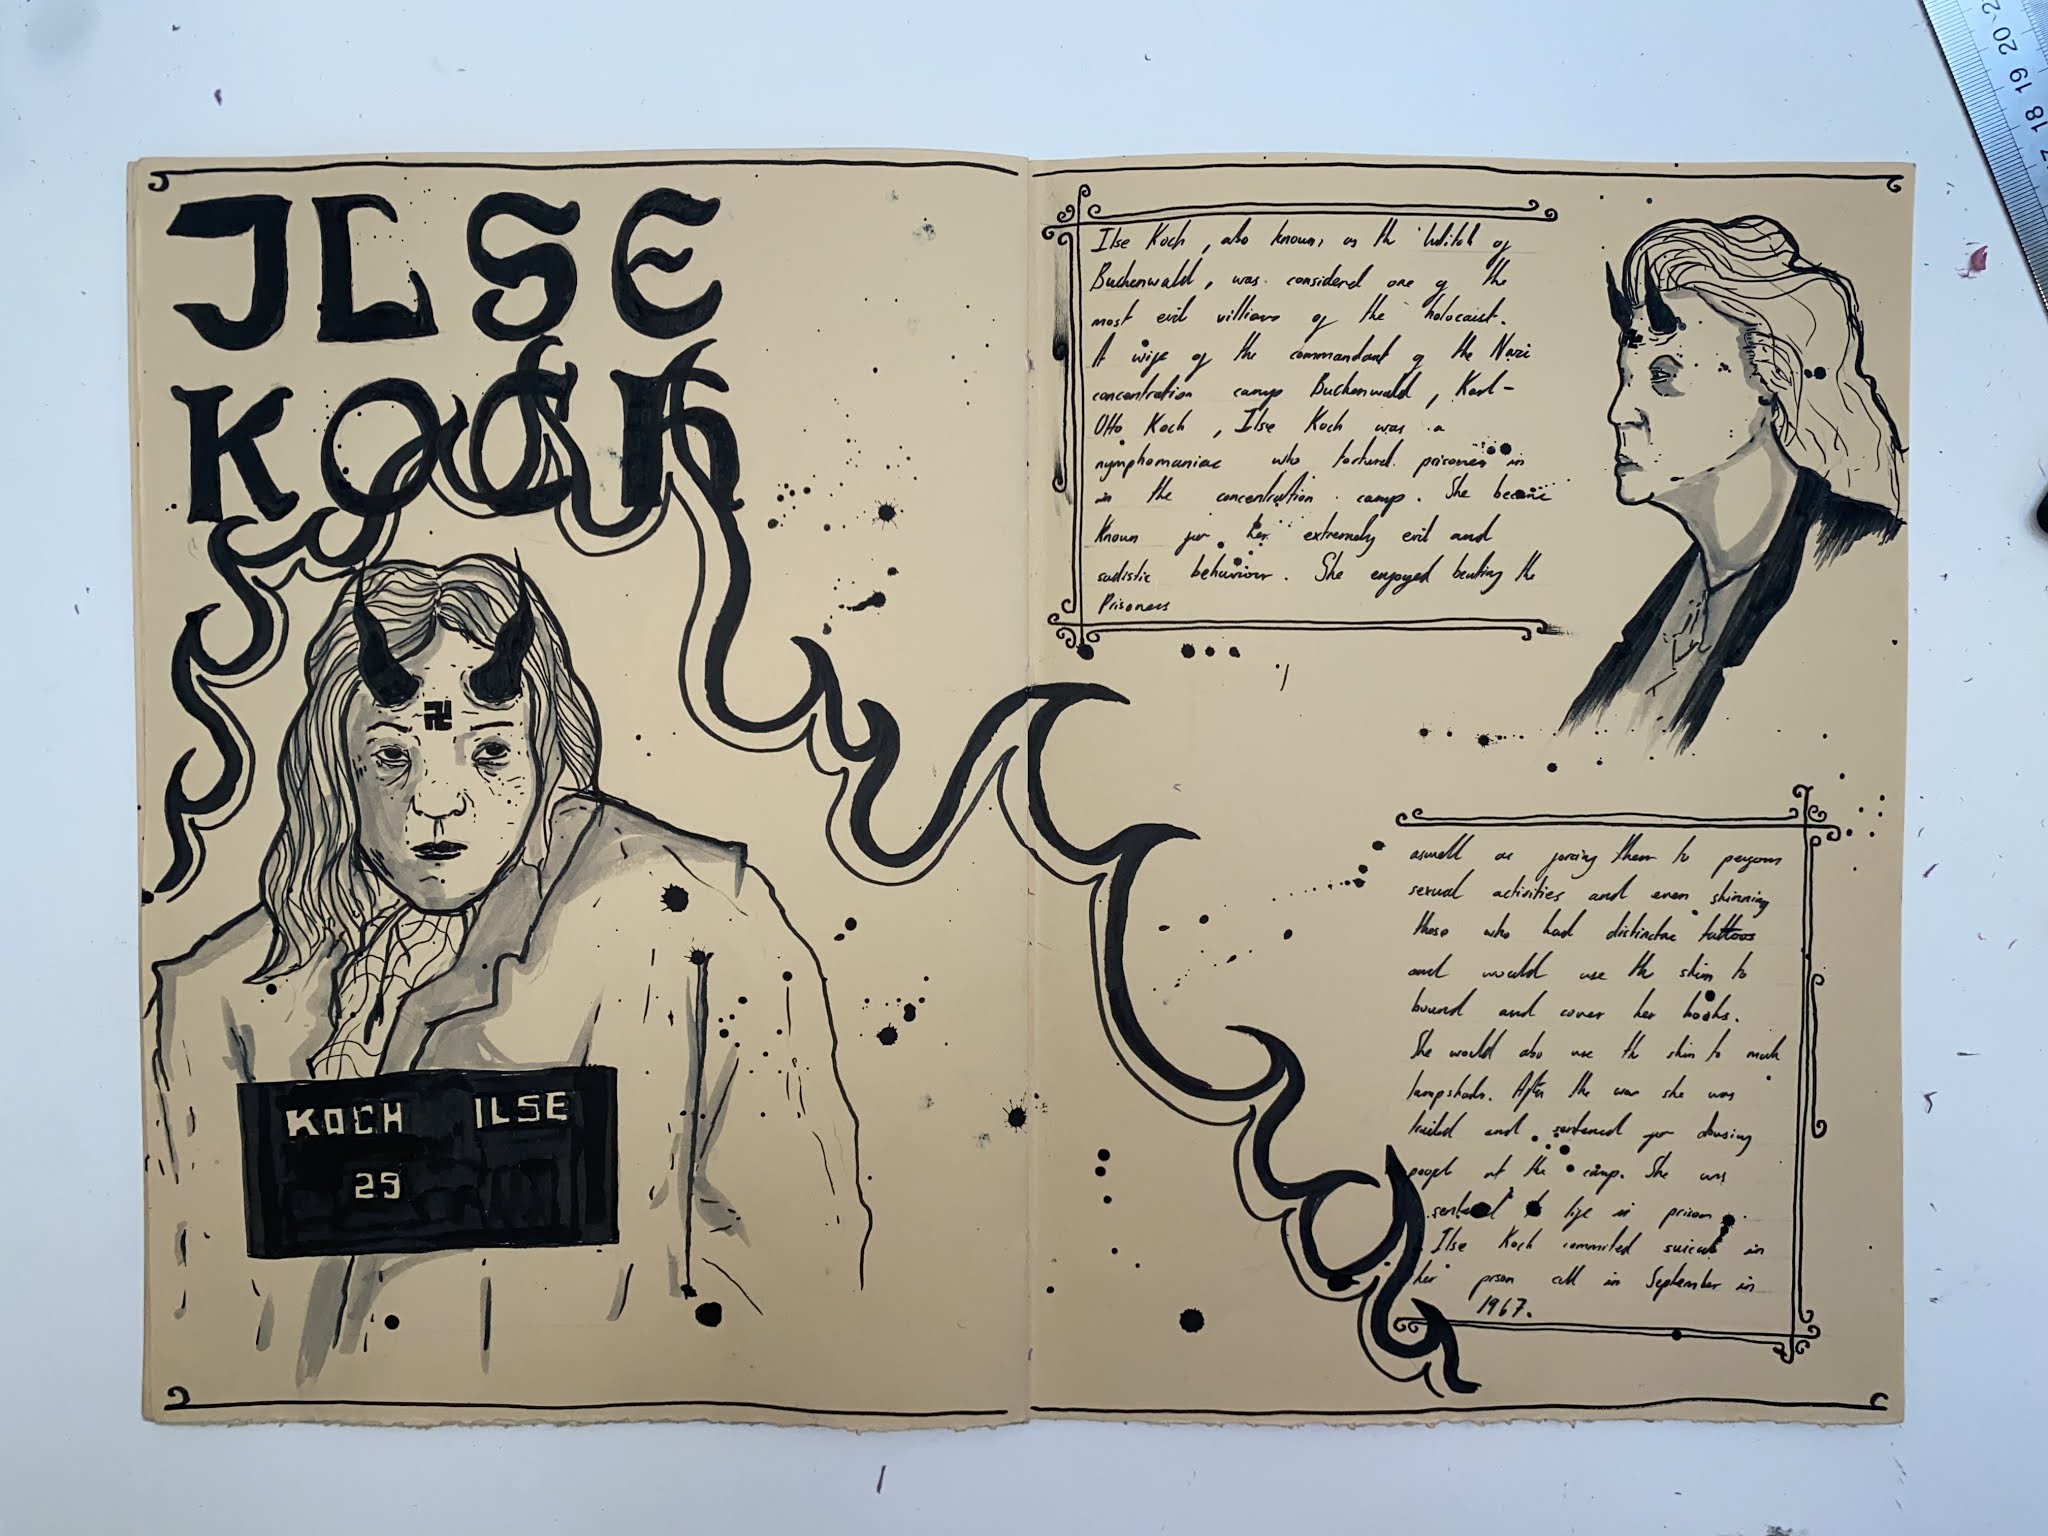 ILSE
KOCH
KOCH ILSE
29
Ilse Koch, also known, as the Witch of
Buchenwald, was considered one of the
most evil villians of the holocaist.
A wife of the commandant of the Nazi
concentration camp Buchenwald, Karl-
Otto Koch, Ilse Koch was a
nymphomaniac who tortured prisoners in
in the concentration camp. She became
known for her extremely evil and
sadistic behaviour. She enjoyed beating the
Prisoners
aswell as forcing them to perform
sexual activities and even skinning
those who had distinctive tattoos
and would use the skin to
bound and cover her books.
She would also use the skin to make
lampshades. After the war she was
trailed and sentenced for abusing
people at the camp. She was
sentenced to life in prison.
Ilse Koch commited suicide in
her prison cell in September in
1967.
17 18 19 20